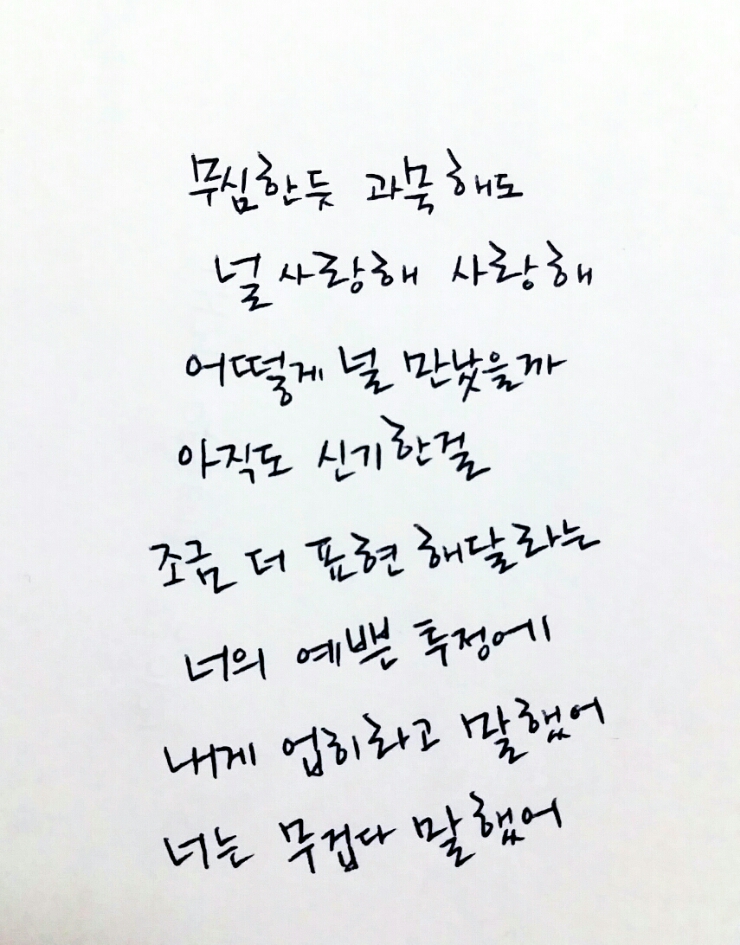 무심한듯 과묵해도
널 사랑해 사랑해
어떻게 널 만났을까
아직도 신기한걸
조금 더 표현 해달라는
너의 예쁜 투정에
내게 업히라고 말했어
너는 무겁다 말했어